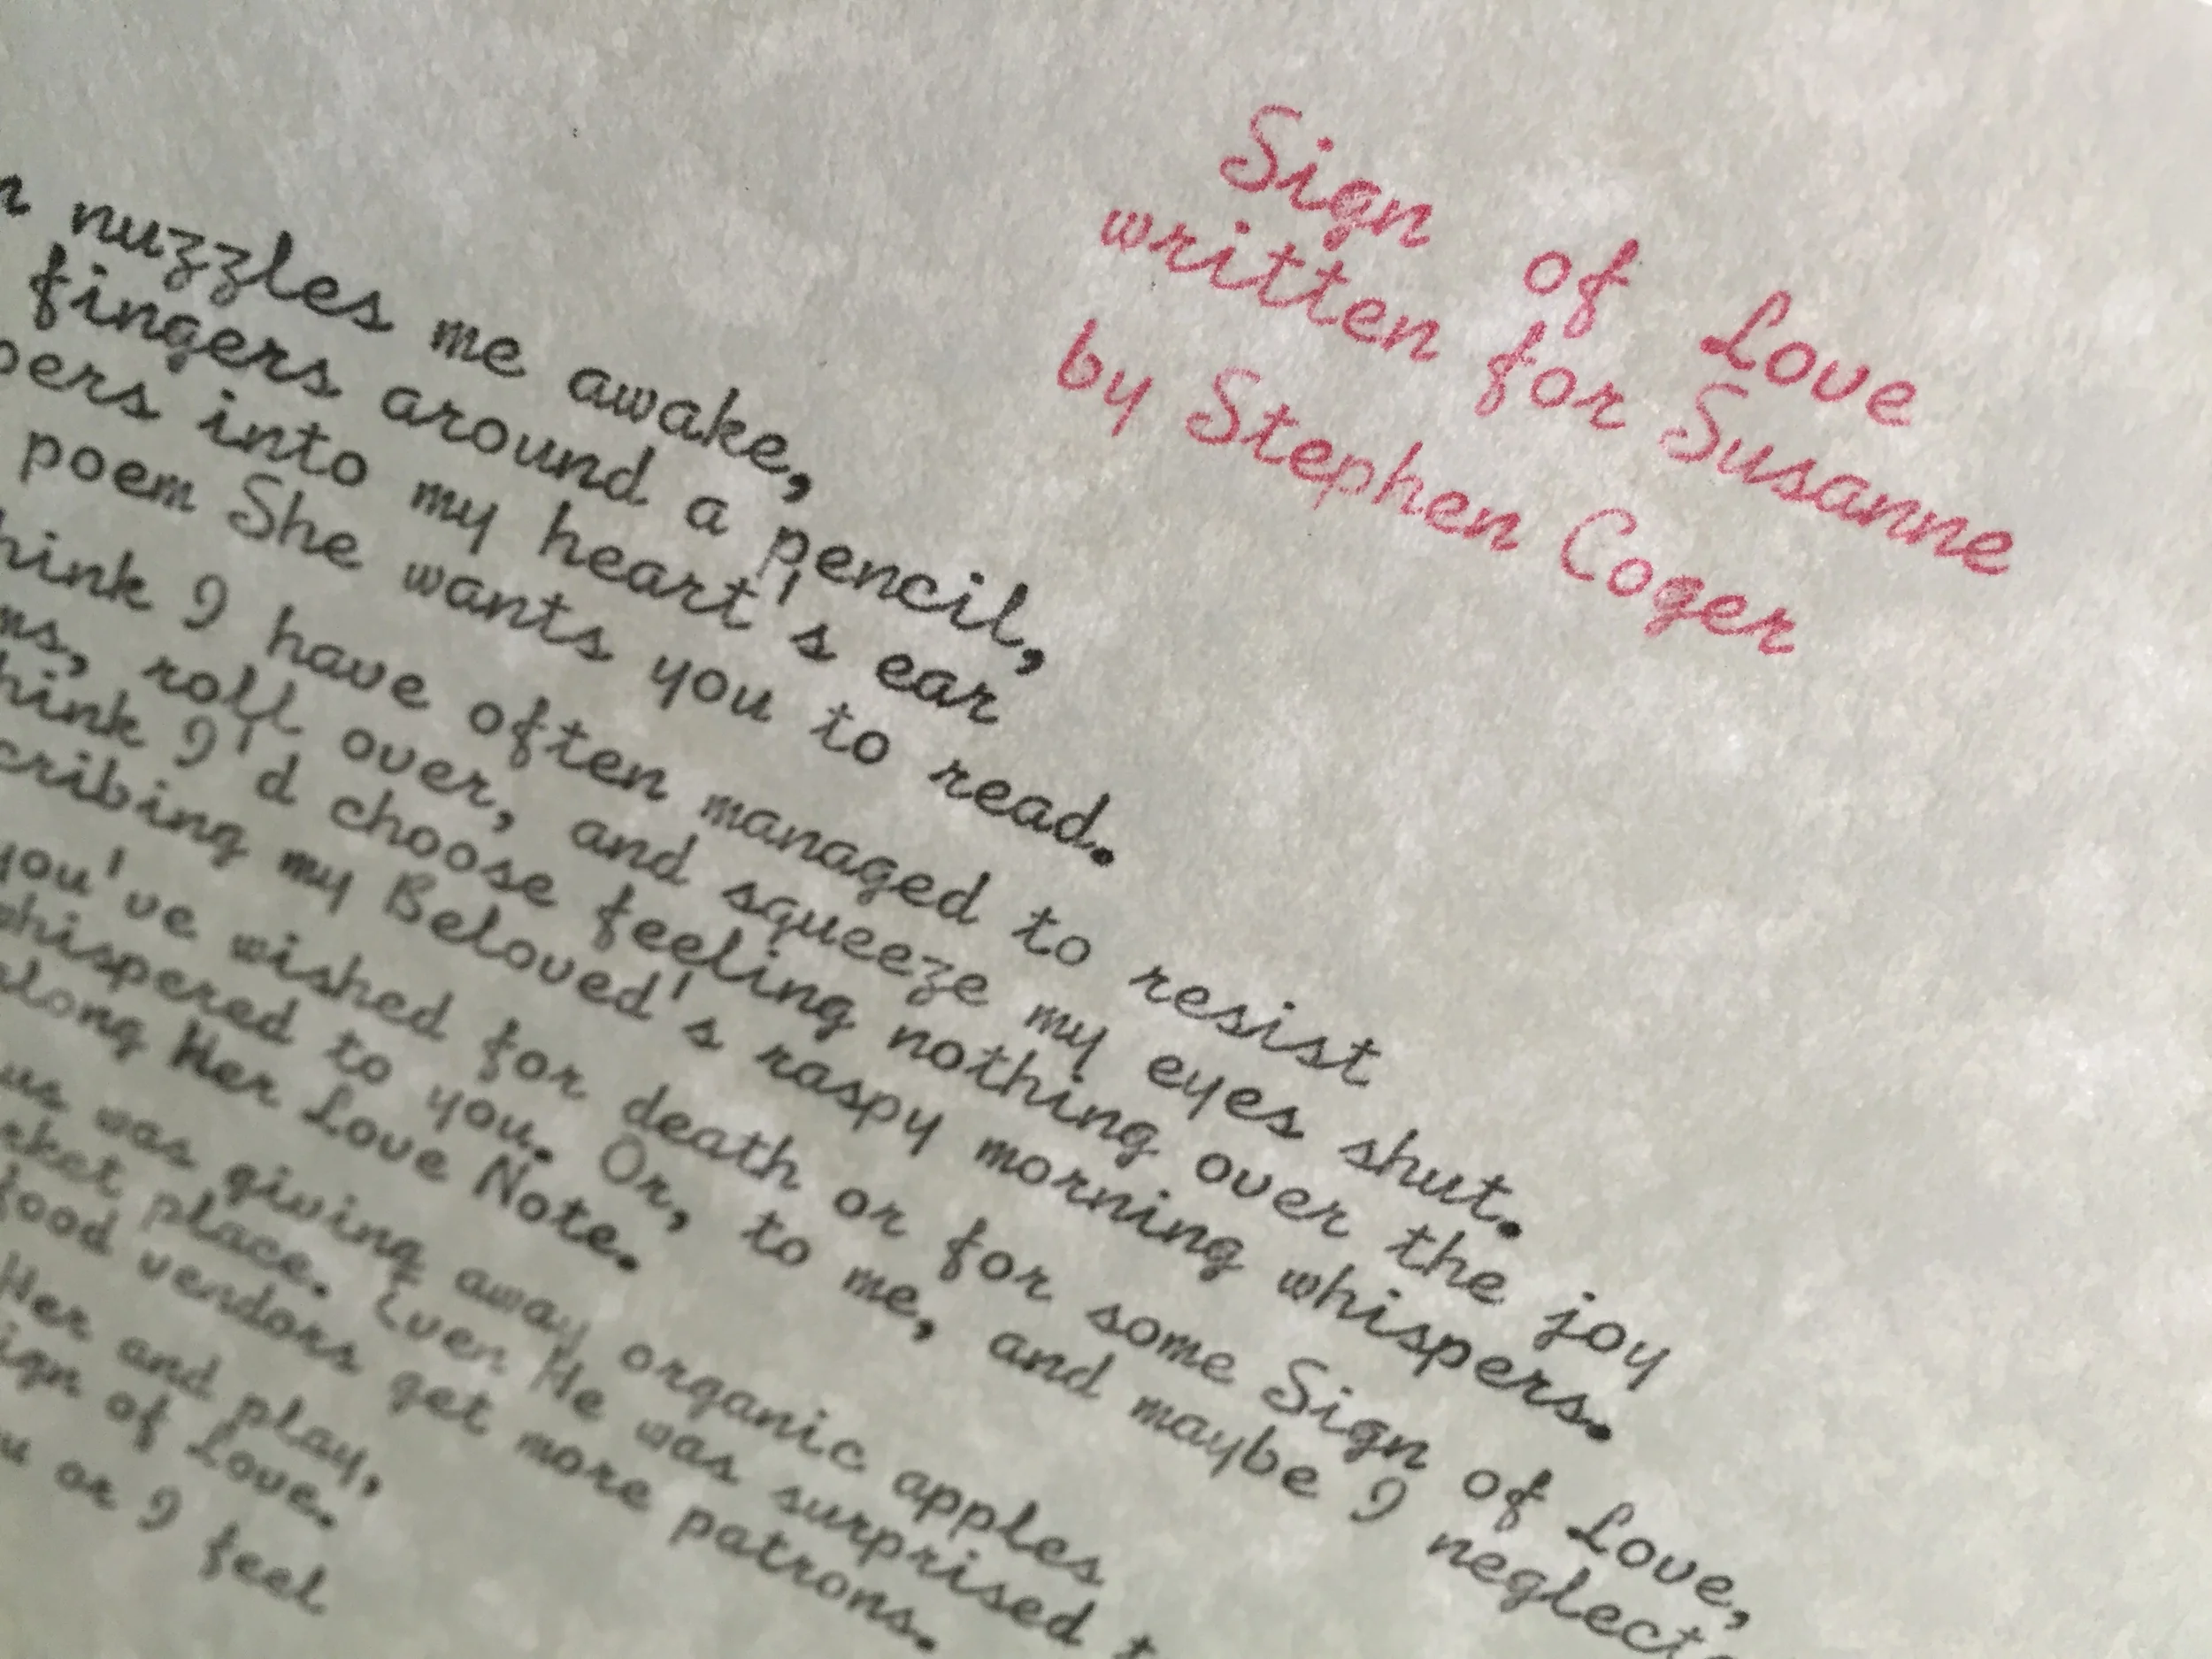 Sign of Love
written for Susanne
by Stephen Coger
n nuzzles me awake,
fingers around a pencil,
pers into my heart's ear
poem She wants you to read.
hink I have often managed to resist
ms, roll over, and squeeze my eyes shut.
hink I'd choose feeling nothing over the joy
cribing my Beloved's raspy morning whispers.
you've wished for death or for some Sign of Love,
hispered to you. Or, to me, and maybe I neglect
along Her Love Note.
us was giving away organic apples
rket place. Even He was surprised t
food vendors get more patrons.
Her and play,
ign of Love.
u or I feel